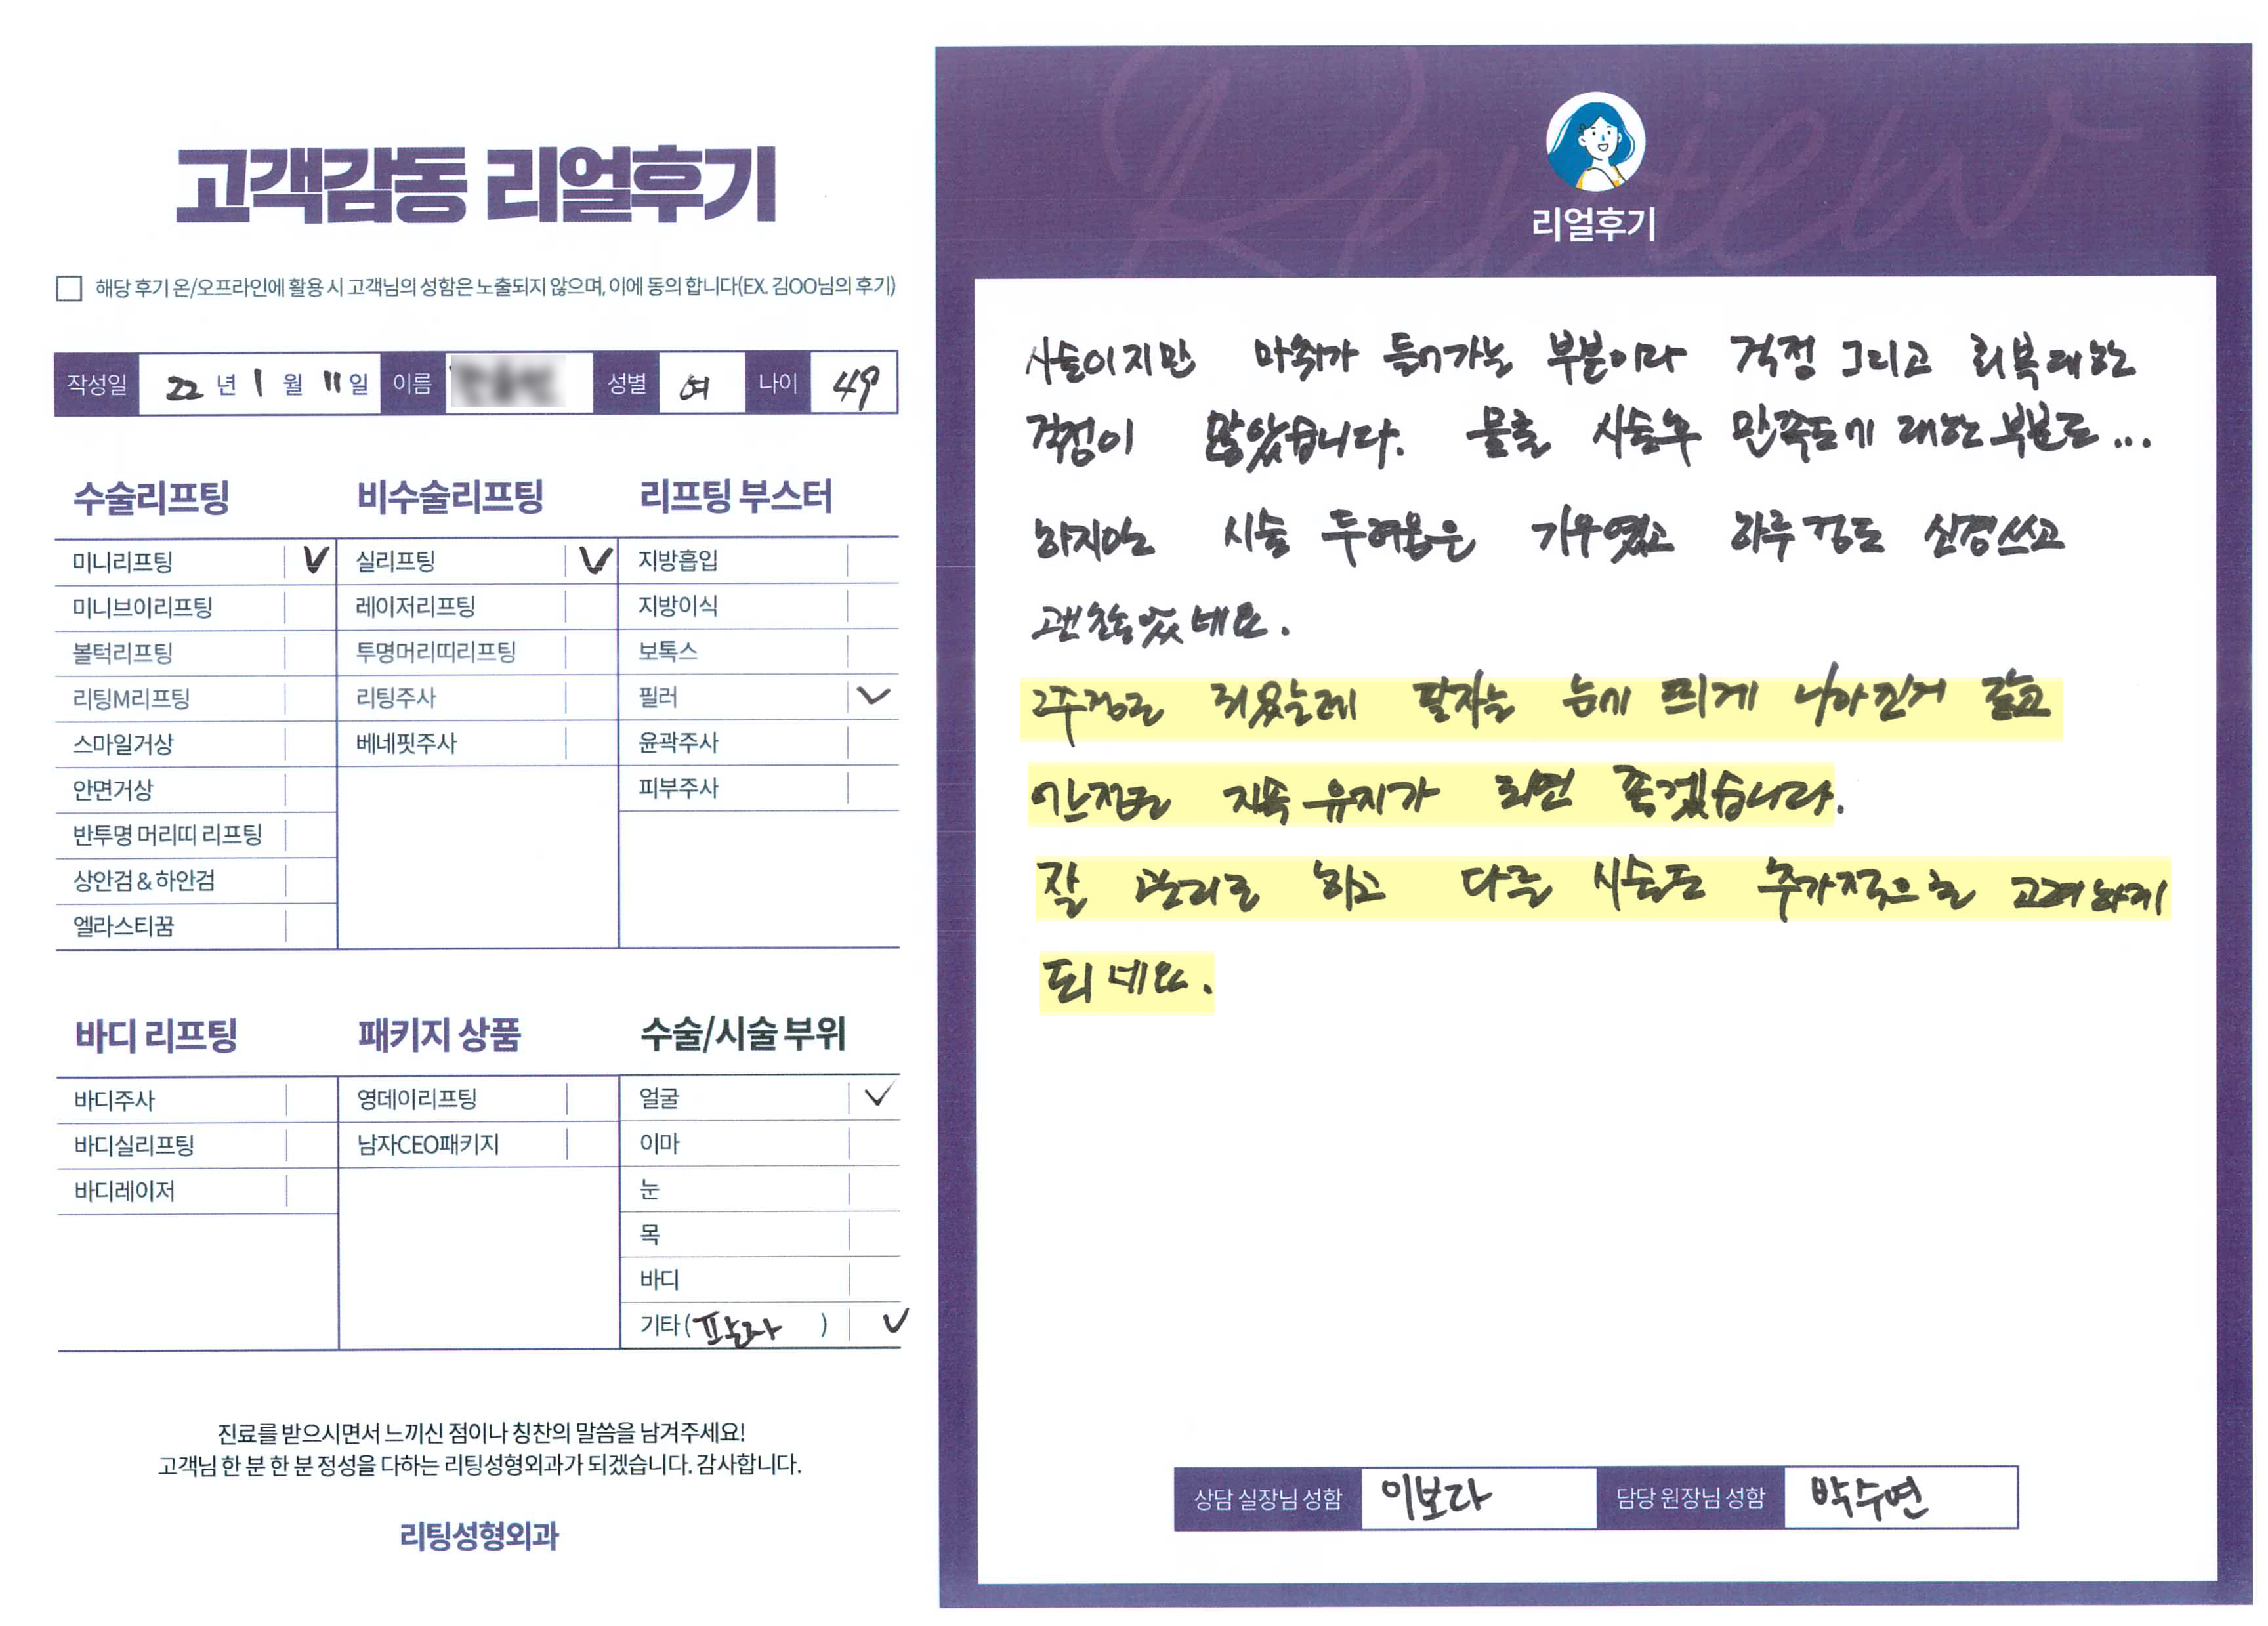 고객감동 리얼후기
해당 후기 온/오프라인에 활용 시 고객님의 성함은 노출되지 않으며, 이에 동의 합니다(EX. 김OO님의 후기)
작성일 22 년 1 월 11 일 이름 성별 여 나이 49
수술리프팅
미니리프팅 V
미니브이리프팅
볼턱리프팅
리팅M리프팅
스마일거상
안면거상
반투명 머리띠 리프팅
상안검 & 하안검
엘라스티꿈
비수술리프팅
실리프팅 V
레이저리프팅
투명머리띠리프팅
리팅주사
베네핏주사
리프팅 부스터
지방흡입
지방이식
보톡스
필러 V
윤곽주사
피부주사
바디 리프팅
바디주사
바디실리프팅
바디레이저
패키지 상품
영데이리프팅
남자CEO패키지
수술/시술 부위
얼굴 V
이마
눈
목
바디
기타 ( 팔자 ) V
진료를 받으시면서 느끼신 점이나 칭찬의 말씀을 남겨주세요!
고객님 한 분 한 분 정성을 다하는 리팅성형외과가 되겠습니다. 감사합니다.
리팅성형외과
Review
리얼후기
시술이지만 마취가 들어가는 부분이라 걱정 그리고 회복대한
걱정이 많았습니다. 물론 시술후 만족도에 대한 부분도...
하지만 시술 두려움은 기우였고 하루 정도 신경쓰고
괜찮았네요.
2주정도 되었는데 팔자는 눈에 띄게 나아진거 같고
이정도 지속 유지가 되면 좋겠습니다.
잘 관리로 하고 다른 시술도 추가적으로 고려하게
되네요.
상담 실장님 성함 이보라 담당 원장님 성함 박수연